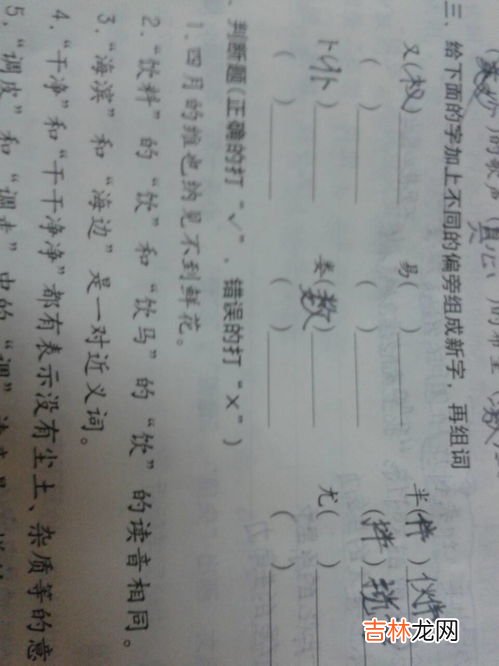 三、给下面的字加上不同的偏旁组成新字，再组词
又(权)______ 易( )______ 半(伴)伙伴
( )______ ( )______ (拌)
卜(仆)______ 娄(数)______ 尤( )______
( )______ ( )______ ( )______
、判断题(正确的打“✓”，错误的打“×”)
1.四月的维也纳见不到鲜花。
2.“饮料”的“饮”和“饮马”的“饮”的读音相同。
3.“海滨”和“海边”是一对近义词。
4.“干净”和“干干净净”都有表示没有尘土、杂质等的意
5.“调皮”和“调走”中的“调”读音
吉林龙网